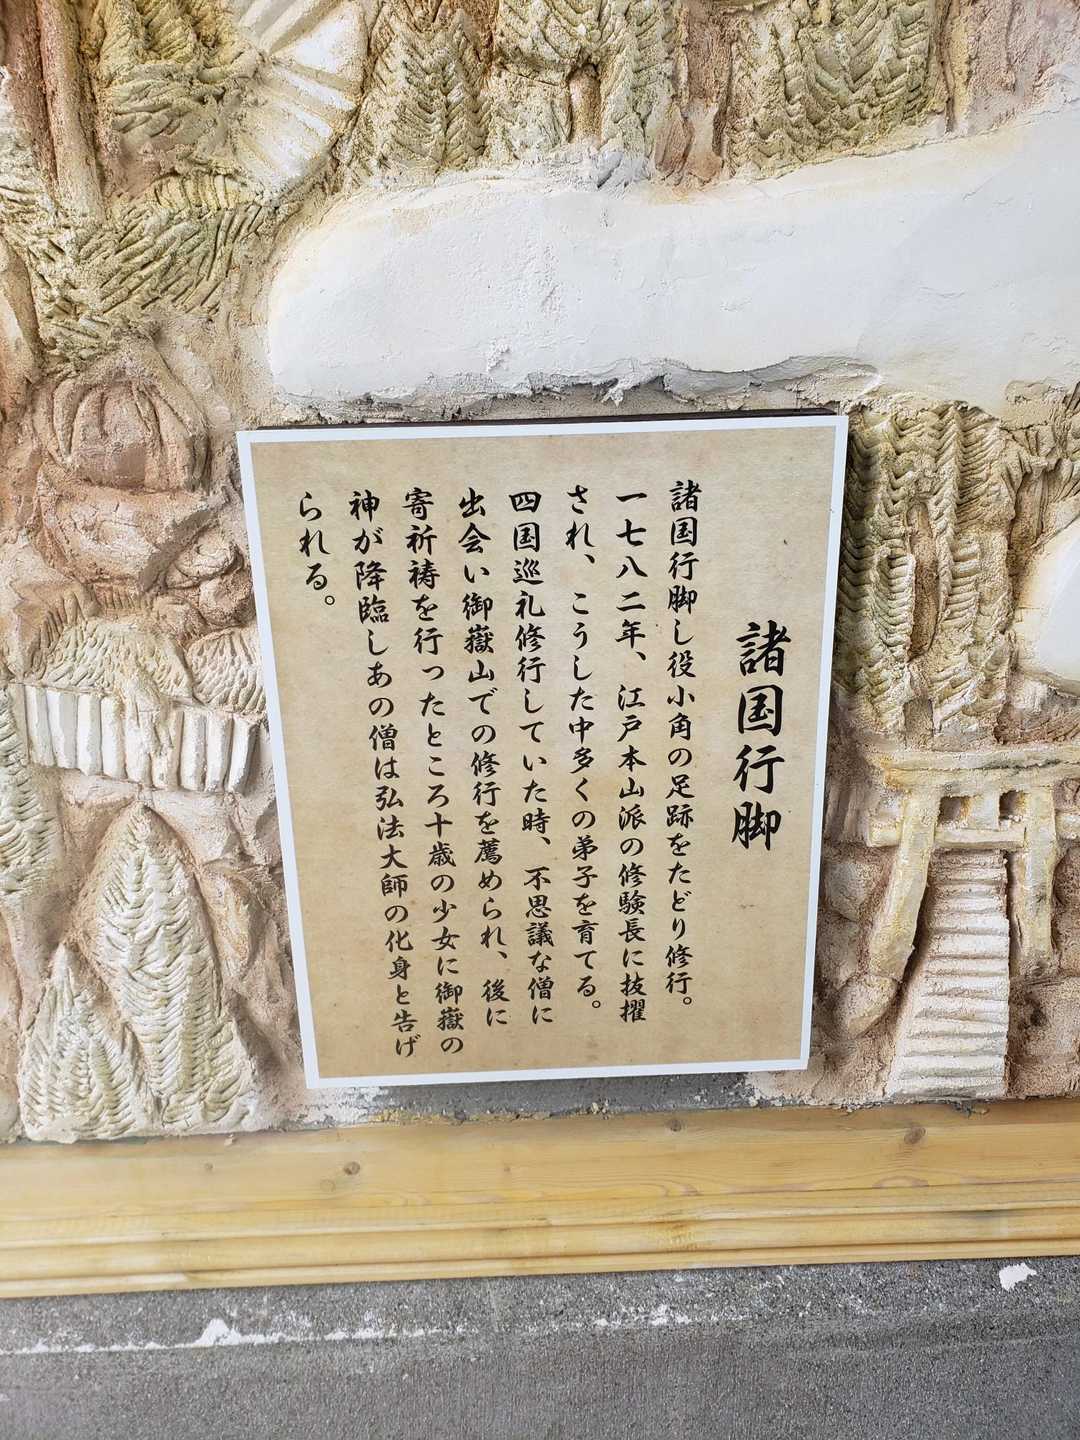 諸国行脚
諸国行脚し役小角の足跡をたどり修行。
一七八二年、江戸本山派の修験長に抜擢
され、こうした中多くの弟子を育てる。
四国巡礼修行していた時、不思議な僧に
出会い御嶽山での修行を薦められ、後に
寄祈祷を行ったところ十歳の少女に御嶽の
神が降臨しあの僧は弘法大師の化身と告げ
られる。